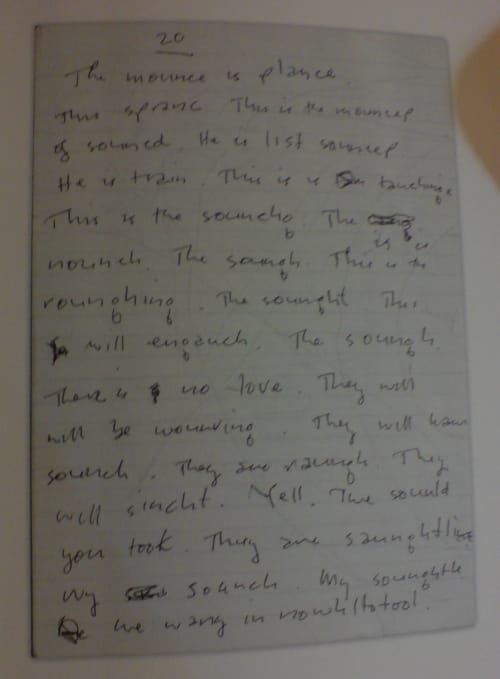 20
The mounce is plance
This spranc This is the mouncep
of sounced. He is list souncep
He is train. This is is touching.
This is the sounchg. The
is is
nounch. The soungh. This is the
rounghing. The sounght This
will engouch. The soungh
There is no love. They will
will be wounving. They will have
sounch. They are raungh. They
will sincht. Yell. The sounld
you took. They are saunghtline
My sounch. My sounghtle
we wang in nowhilstotool.